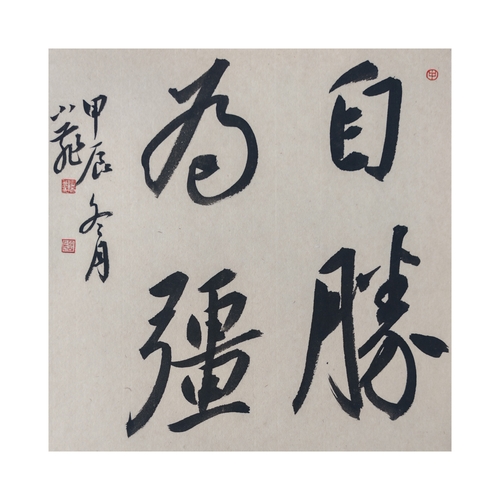 自勝
為彊
甲辰冬月
小